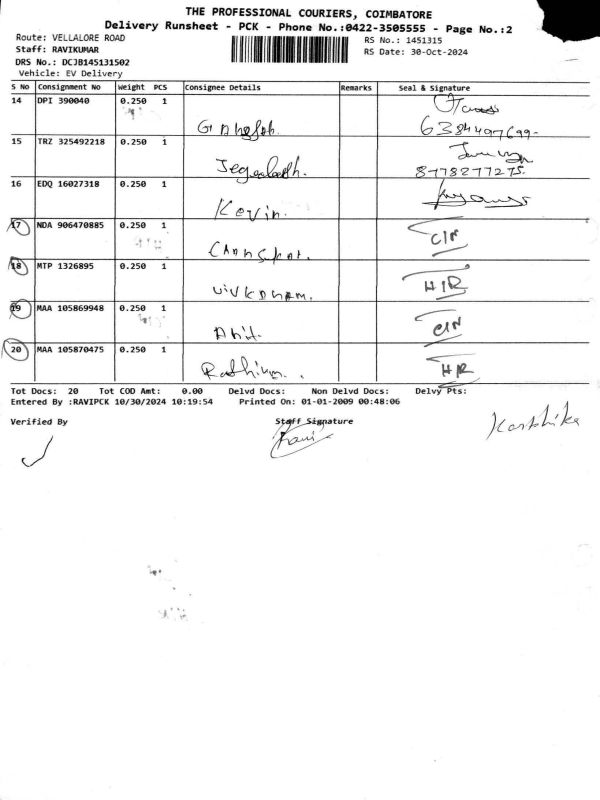 THE PROFESSIONAL COURIERS, COIMBATORE
Delivery Runsheet - PCK - Phone No.:0422-3505555 - Page No.:2
Route: VELLALORE ROAD
RS No.: 1451315
Staff: RAVIKUMAR
RS Date: 30-Oct-2024
DRS No.: DCJB145131502
Vehicle: EV Delivery
S No Consignment No Weight PCS Consignee Details Remarks Seal & Signature
14 DPI 390040 0.250 1
6384497699-
15 TRZ 325492218 0.250 1
8778277275.
16 EDQ 16027318 0.250 1
Kevin.
17 NDA 906470885 0.250 1
18 MTP 1326895 0.250 1
19 MAA 105869948 0.250 1
20 MAA 105870475 0.250 1
Tot Docs: 20 Tot COD Amt: 0.00 Delvd Docs: Non Delvd Docs: Delvy Pts:
Entered By :RAVIPCK 10/30/2024 10:19:54 Printed On: 01-01-2009 00:48:06
Verified By Staff Signature
Ravi
Karthika